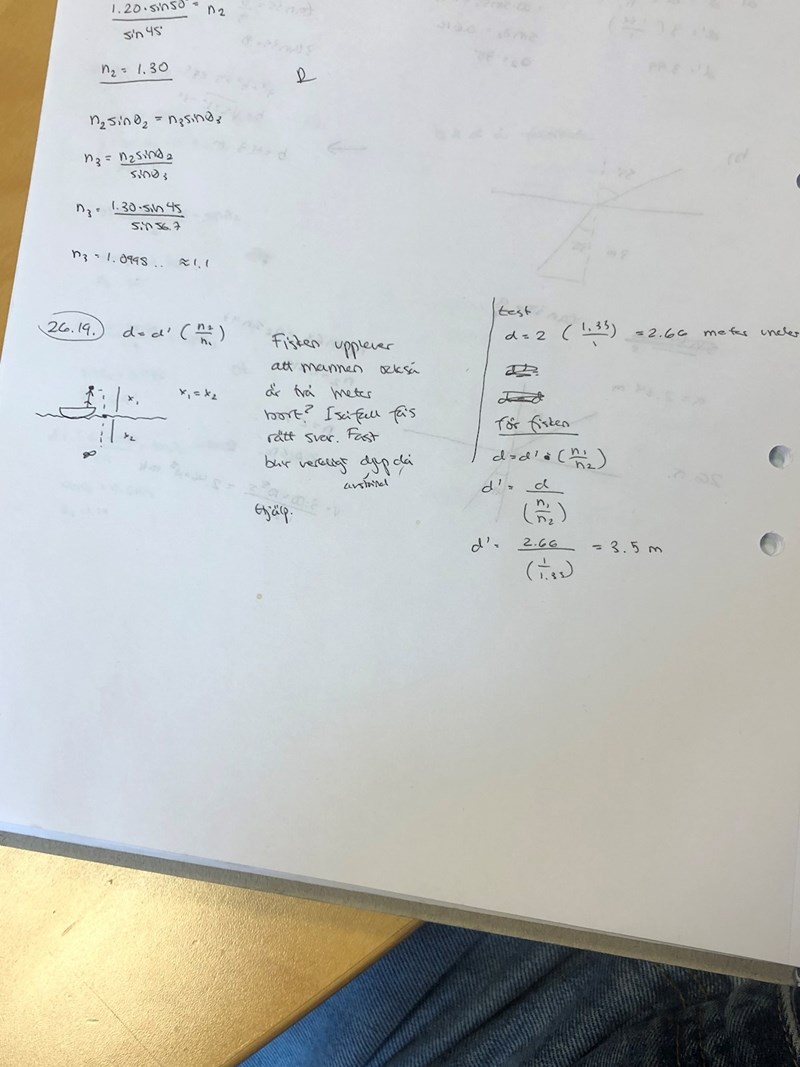 1.20·sin50 = n2
sin 45
n2 = 1.30
n2 sinθ2 = n3 sinθ3
n3 = n2 sinθ2
sinθ3
n3 = 1.30·sin 45
sin 56.7
n3 = 1.0998.. ≈ 1.1
26.19. d = d' (n2/n1)
x1
x2
x1 = x2
Fisken upplever
att mannen också
är två meter
bort? I så fall fås
rätt svar. Fast
blir verkligt djup då
avstånd
Hjälp.
test
d = 2 (1.33/1) = 2.66 meter under
för fisken
d = d' · (n1/n2)
d' = d
(n1/n2)
d' = 2.66 = 3.5 m
(1/1.33)